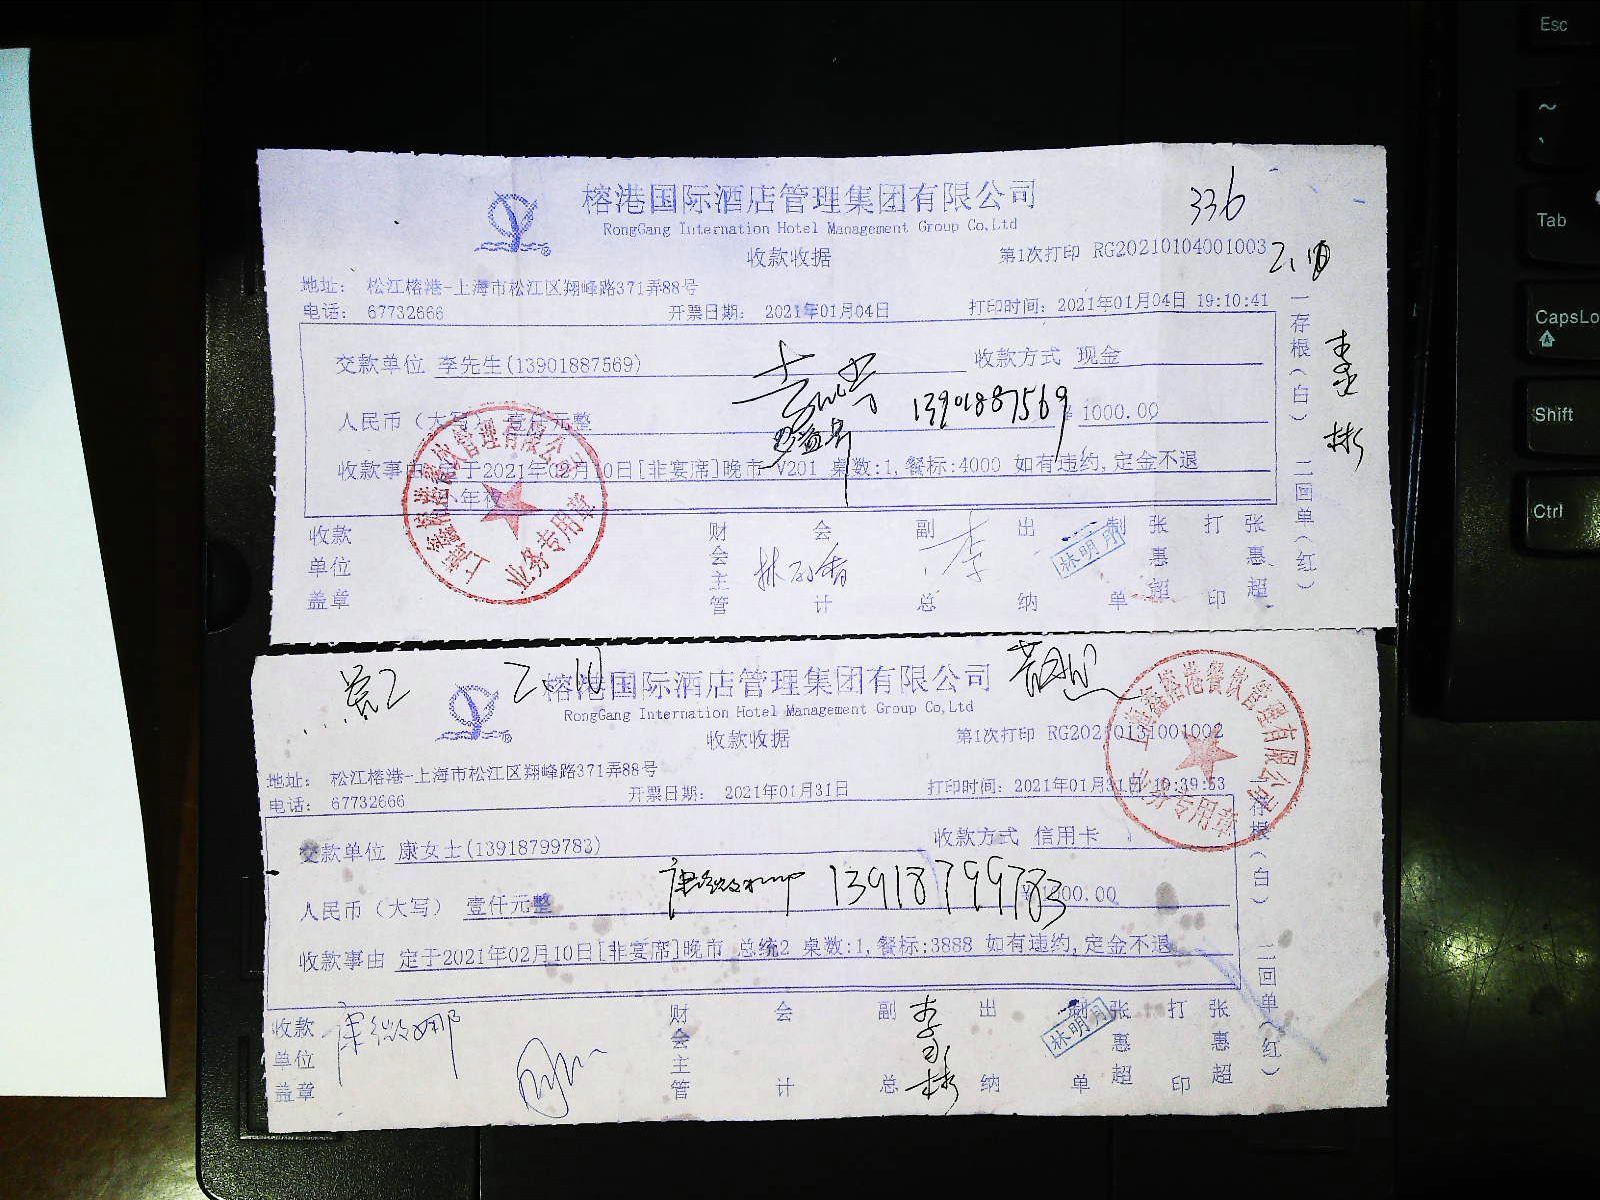 336
榕港国际酒店管理集团有限公司
RongGang Internation Hotel Management Group Co,Ltd
收款收据
第1次打印 RG20210104001003
地址： 松江榕港-上海市松江区翔峰路371弄88号
电话： 67732666 开票日期： 2021年01月04日 打印时间：2021年01月04日 19:10:41
交款单位 李先生(13901887569) 收款方式 现金
13901887569
人民币（大写） 壹仟元整 ¥ 1000.00
收款事由 定于2021年02月10日[非宴席]晚市 V201 桌数:1,餐标:4000 如有违约,定金不退
小年夜
收款单位盖章 财会主管 会计 副总 李 出纳 林明月 制单 张惠超 打印 张惠超
一存根（白） 二回单（红）
上海鑫榕港餐饮管理有限公司
业务专用章
榕港国际酒店管理集团有限公司
RongGang Internation Hotel Management Group Co,Ltd
收款收据
第1次打印 RG20210131001002
地址： 松江榕港-上海市松江区翔峰路371弄88号
电话： 67732666 开票日期： 2021年01月31日 打印时间：2021年01月31日 10:39:53
交款单位 康女士(13918799783) 收款方式 信用卡
13918799783
人民币（大写） 壹仟元整 ¥ 1000.00
收款事由 定于2021年02月10日[非宴席]晚市 总统2 桌数:1,餐标:3888 如有违约,定金不退
收款单位盖章 财会主管 会计 副总 出纳 林明月 制单 张惠超 打印 张惠超
一存根（白） 二回单（红）
上海鑫榕港餐饮管理有限公司
业务专用章
Esc
~
Tab
CapsLo
Shift
Ctrl